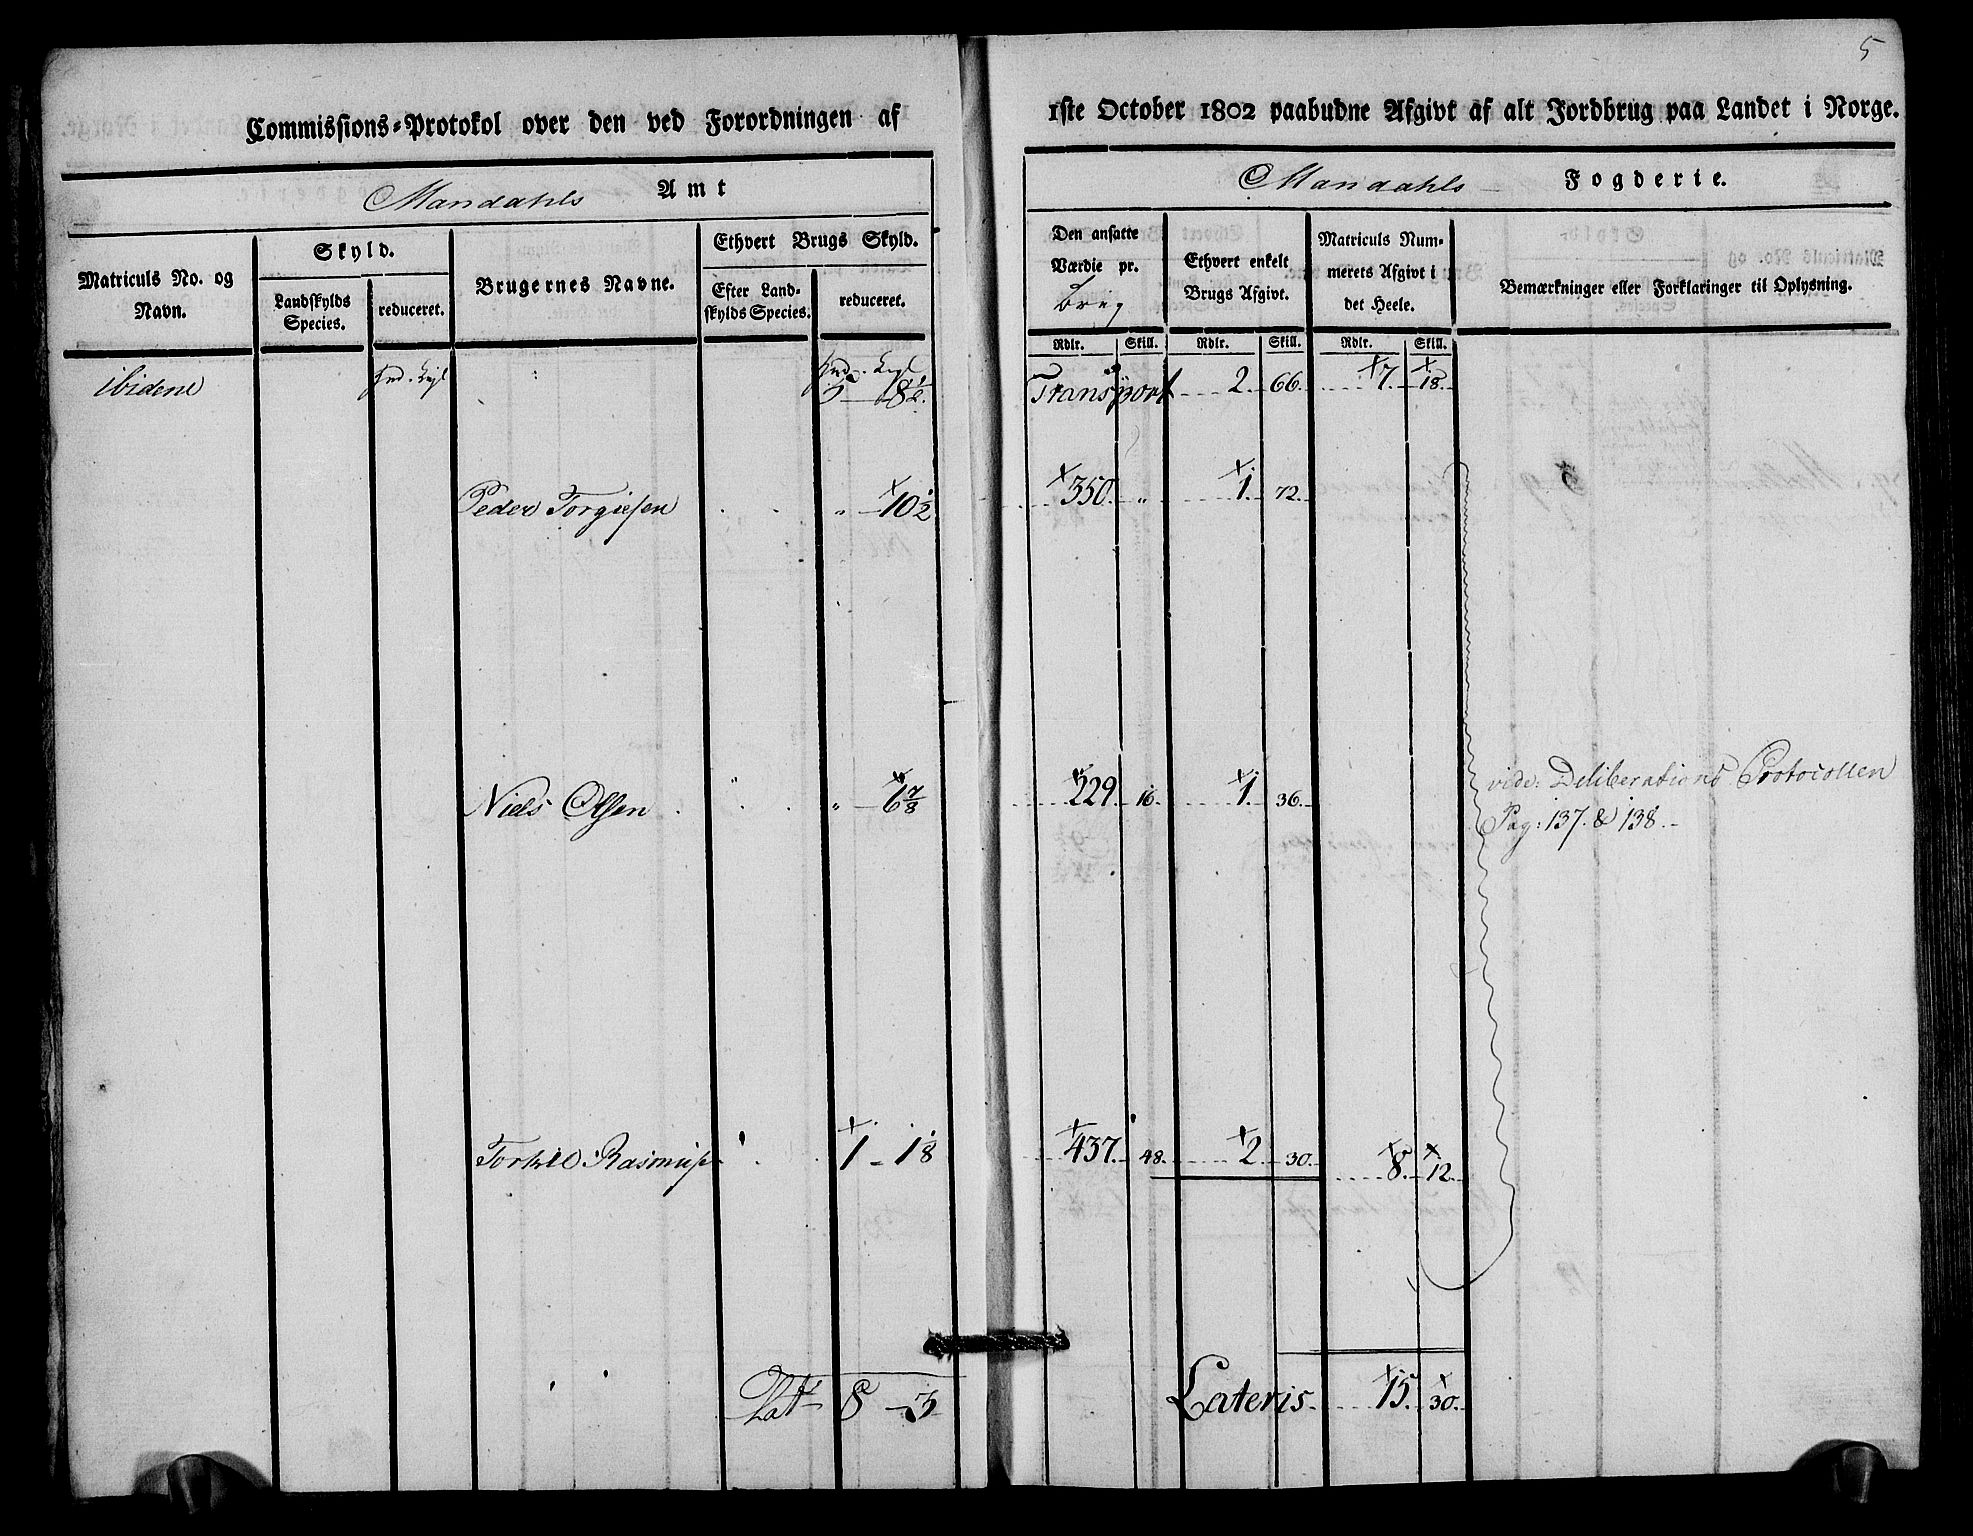 5
Commissions-Protokol over den ved Forordningen af 1ste October 1802 paabudne Afgivt af alt Jordbrug paa Landet i Norge.
Mandahls Amt
Mandahls Fogderie.
Matriculs No. og Navn.
Skyld.
Landskylds Species.
reduceret.
Brugernes Navne.
Ethvert Brugs Skyld.
Efter Landskylds Species.
reduceret.
Den ansatte Værdie pr. Brug
Ethvert enkelt Brugs Afgivt.
Matriculs Nummerets Afgivt i det Heele.
Bemærkninger eller Forklaringer til Oplysning.
Rdlr. Skill. Rdlr. Skill. Rdlr. Skill.
ibidem 5 8½ Transport 2 66 7 18
Peder Torgiesen " 10½ 350 " 1 72
Niels Olsen " 6⅞ 229 16 1 36
vide: Deliberations Protocollen
Pag: 137. & 138.
Torkild Rasmus 1 18 437 48 2 30 8 12
Lat 8 3 Lateris 15 30